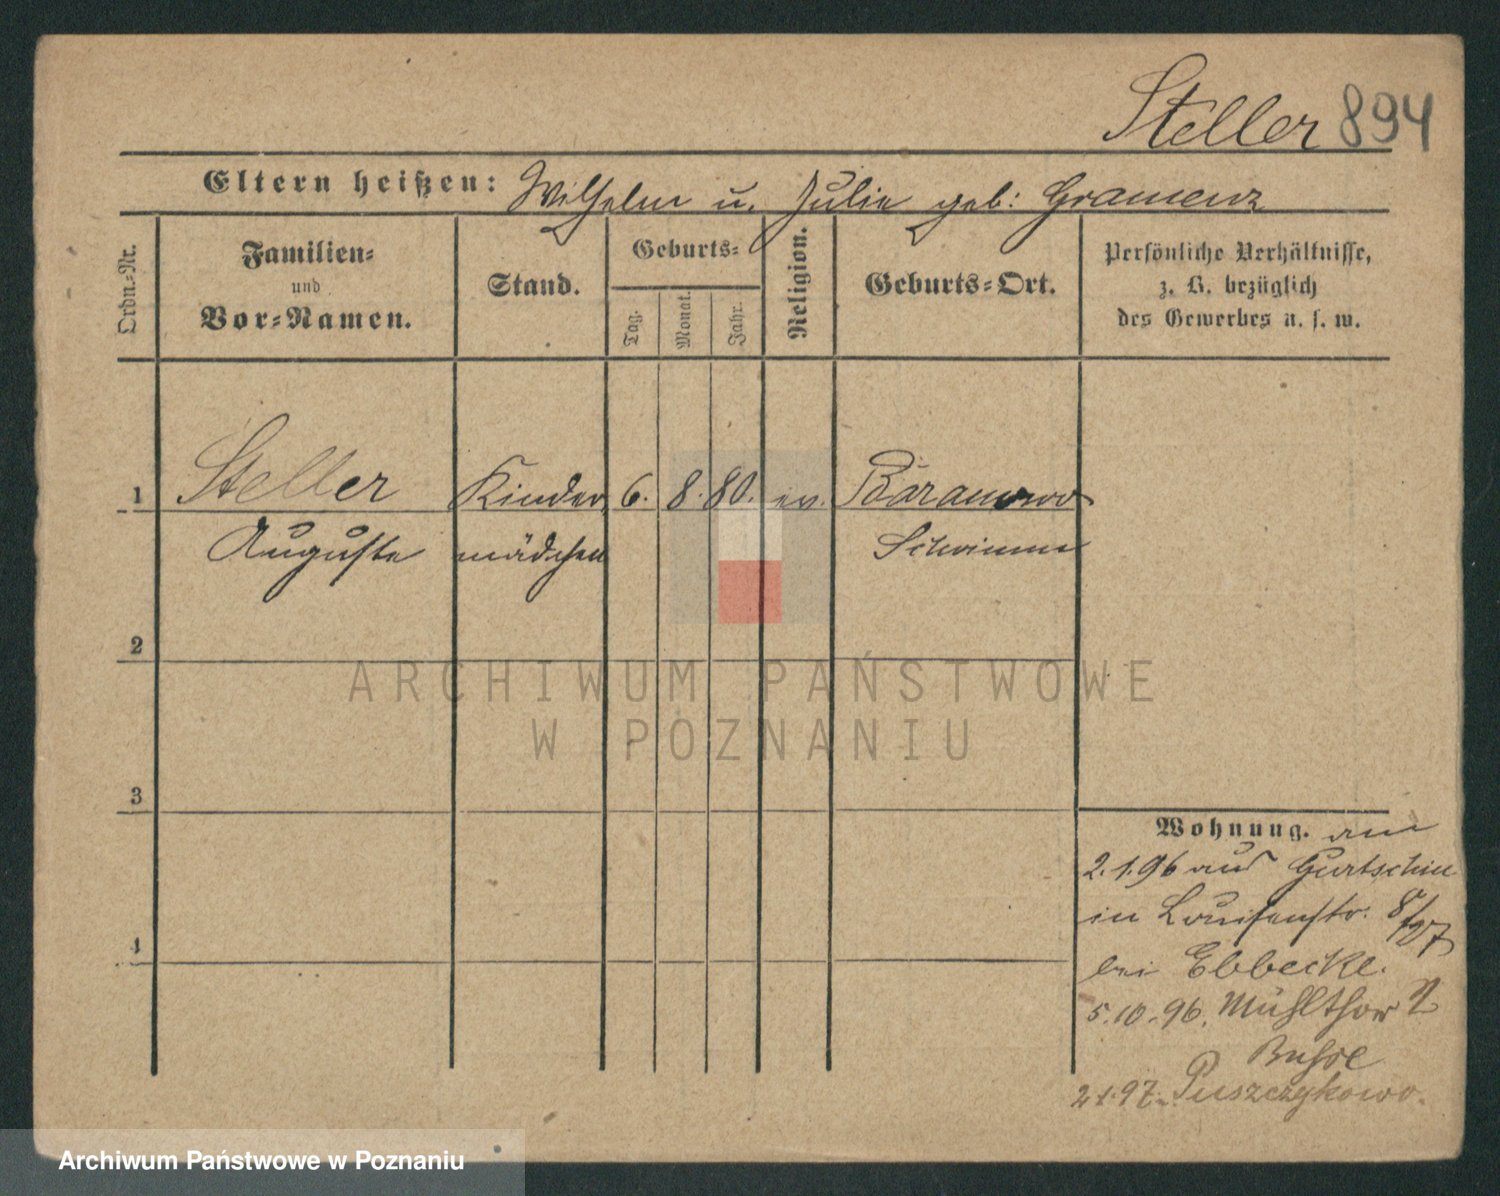 Steller 894
Eltern heißen: Wilhelm u. Julie geb: Gramenz
Ordn.-Nr.
Familien-
und
Vor-Namen.
Stand.
Geburts-
Tag.
Monat.
Jahr.
Religion.
Geburts-Ort.
Persönliche Verhältnisse,
z. B. bezüglich
des Gewerbes u. s. w.
1 Steller Kinder 6. 8. 80. ev. Baranowo
Auguste mädchen Schrimm
2
3
4
Wohnung. am
2.1.96 aus Gurtschin
in Louisenstr.
bei Ebbecke.
5.10.96. Mühlthor
2.1.97. Puszczykowo.
ARCHIWUM PAŃSTWOWE
W POZNANIU
Archiwum Państwowe w Poznaniu